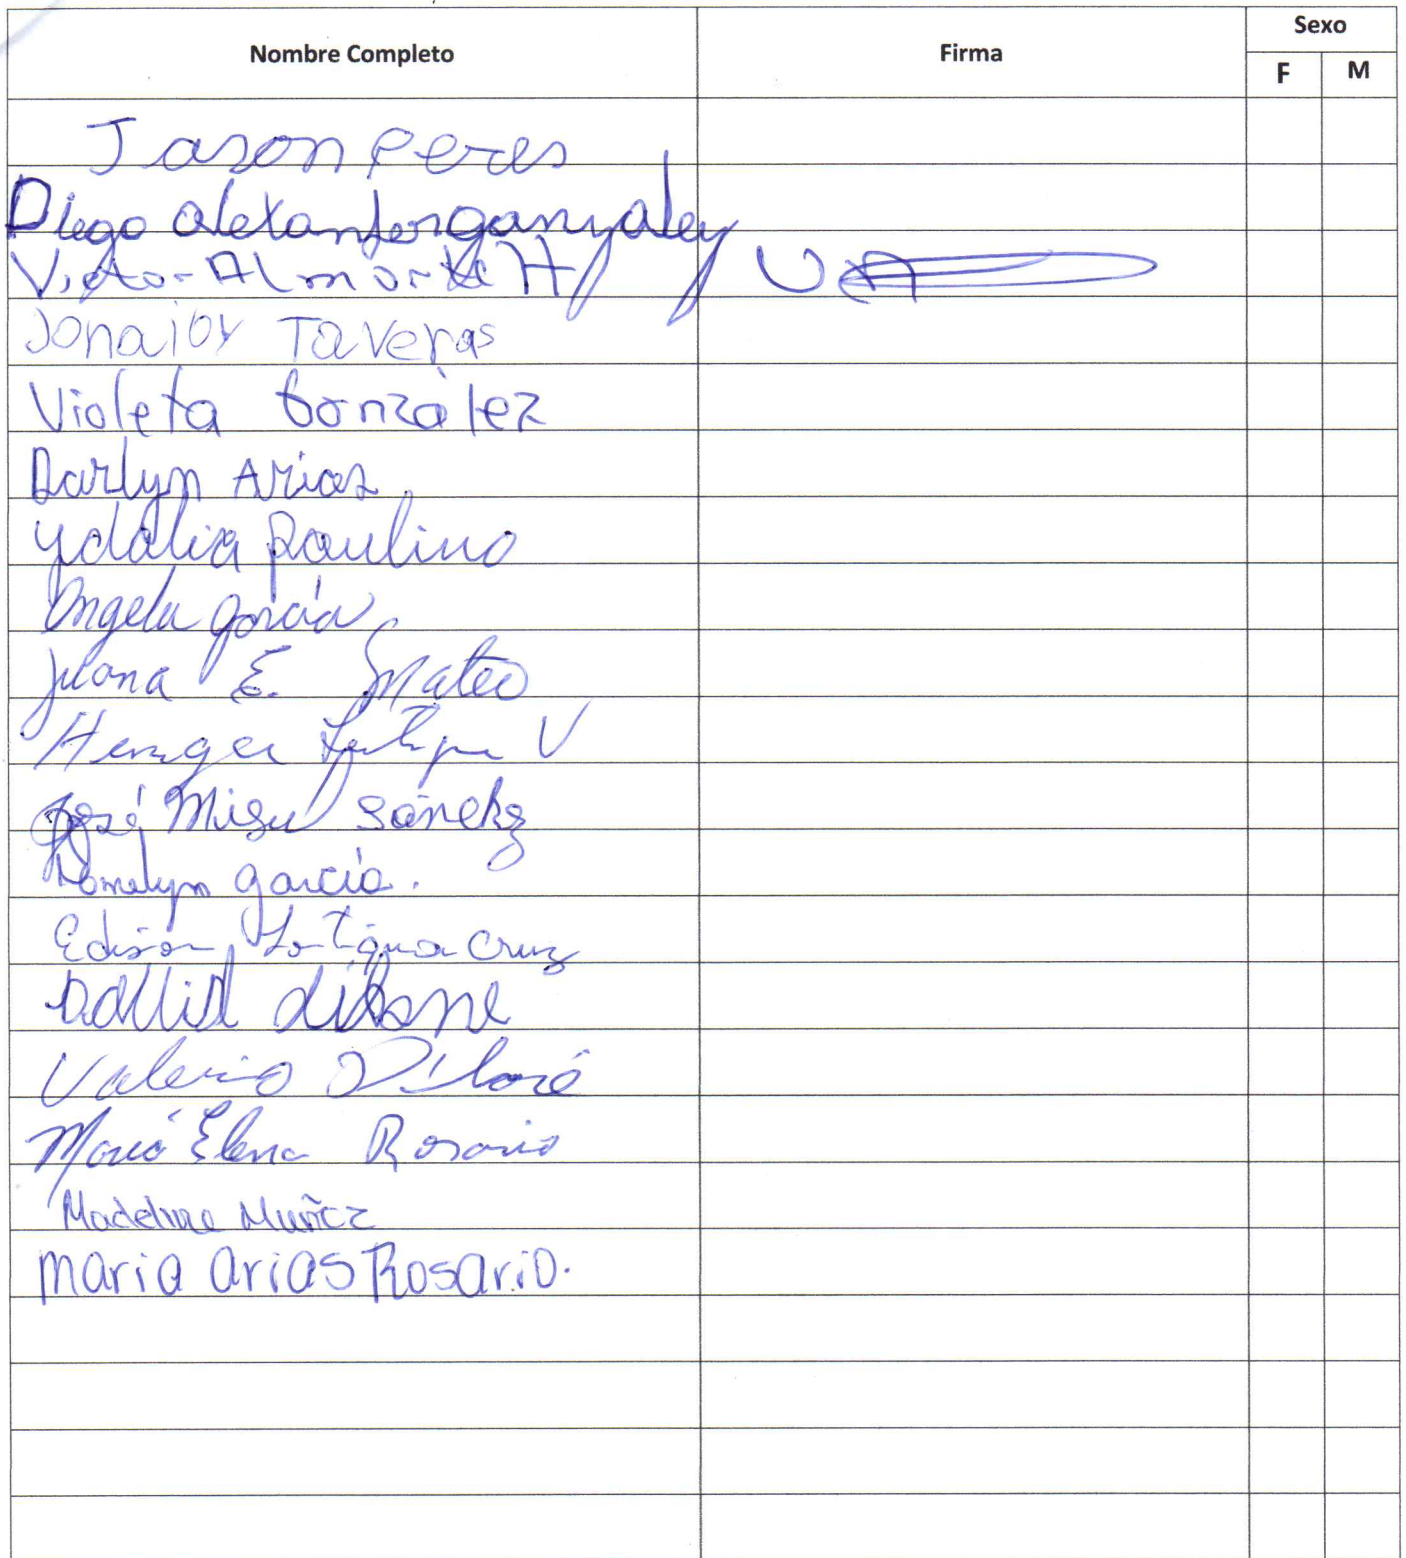 Nombre Completo Firma Sexo
F M
Jason Peres
Diego Alexander ganzaley
Victor Almonte H
Jonaiby Taveras
Violeta González
Darlyn Arias
Ydalia Paulino
Angela García
Juana E. Mateo
V
José Miguel Sánchez
garcía.
Edison Lantigua Cruz
Valerio
María Elena Rosario
Madeline Muñoz
Maria Arias Rosario.